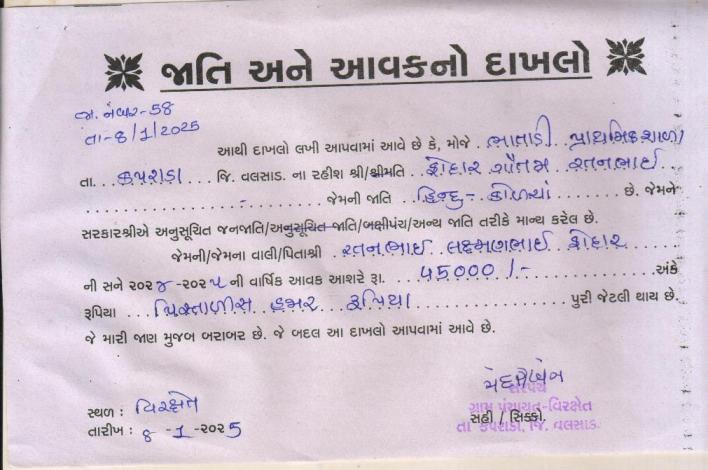 જાતિ અને આવકનો દાખલો
જા. નંબર-58
તા-8/1/2025
આથી દાખલો લખી આપવામાં આવે છે કે, મોજે . ભાતાડી પ્રાથમિક શાળા
તા. કપરાડા જિ. વલસાડ. ના રહીશ શ્રી/શ્રીમતિ ગૌતમ રતનભાઈ
જેમની જાતિ હિન્દુ - છે. જેમને
સરકારશ્રીએ અનુસૂચિત જનજાતિ/અનુસૂચિત જાતિ/બક્ષીપંચ/અન્ય જાતિ તરીકે માન્ય કરેલ છે.
જેમની/જેમના વાલી/પિતાશ્રી રતનભાઈ લક્ષ્મણભાઈ
ની સને ૨૦૨૪-૨૦૨૫ ની વાર્ષિક આવક આશરે રૂા. 45000/- અંકે
રૂપિયા પિસ્તાળીસ હજાર રૂપિયા પુરી જેટલી થાય છે.
જે મારી જાણ મુજબ બરાબર છે. જે બદલ આ દાખલો આપવામાં આવે છે.
સરપંચ
સ્થળ : વિરક્ષેત
ગ્રામ પંચાયત-વિરક્ષેત
સહી / સિક્કો.
તા કપરાડા, જિ. વલસાડ.
તારીખ : 8 -1 -૨૦૨5